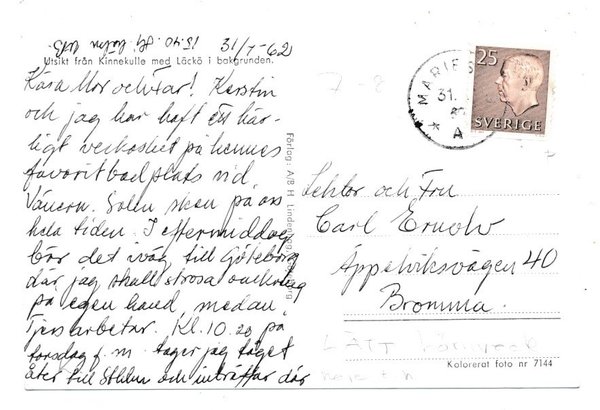 31/7-62
Utsikt från Kinnekulle med Läckö i bakgrunden.
Kära Mor och Far! Kerstin
och jag har haft ett här-
ligt veckoslut på hennes
favoritbadplats vid
Vänern. Solen sken på oss
hela tiden. I eftermiddag
bär det iväg till Göteborg
där jag skall strosa omkring
på egen hand, medan
arbetar. Kl. 10.20 på
torsdag f.m. tager jag tåget
åter till Sthlm och inträffar där
15.40.
Förlag: A/B H. Lindenhag, Göteborg
25
SVERIGE
MARIES
31.
A
7-8
Lektor och Fru
Carl
Äppelviksvägen 40
Bromma.
LÄTT
Kolorerat foto nr 7144